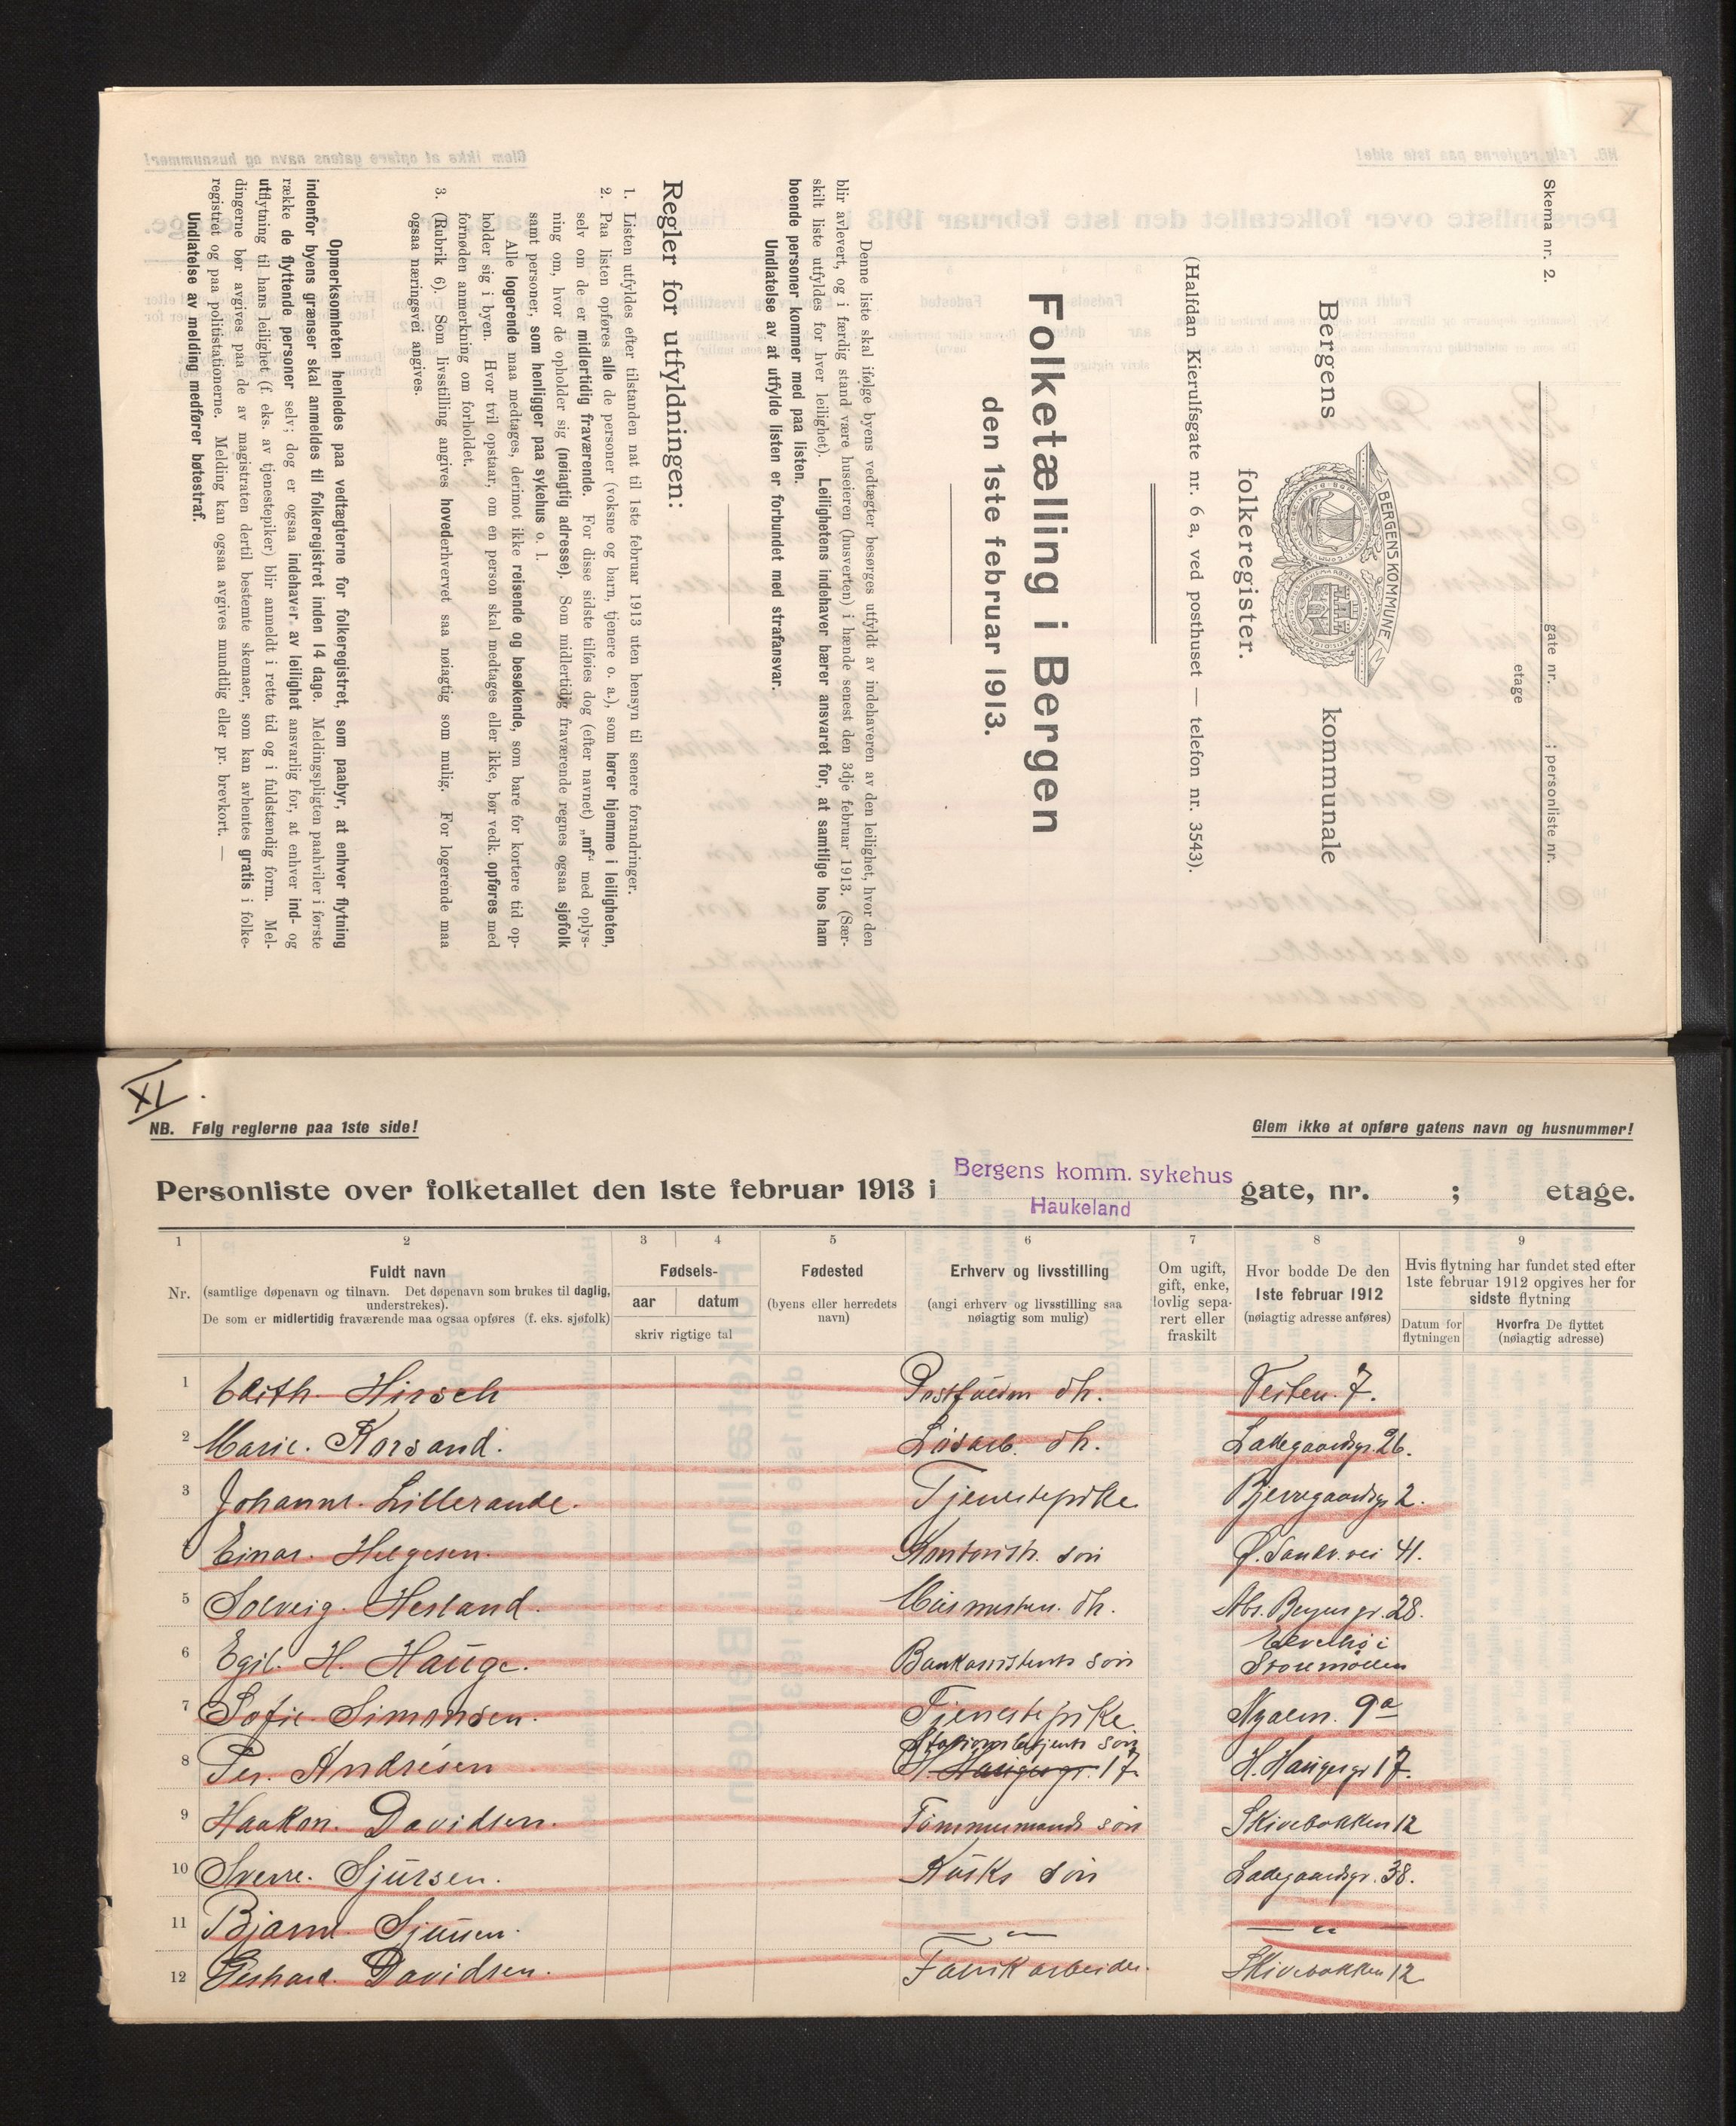 Skema nr. 2.
gate nr. ; personliste nr.
etage
Bergens kommunale
BERGENS KOMMUNE
folkeregister.
(Halfdan Kierulfsgate nr. 6 a, ved posthuset — telefon nr. 3543).
Folketælling i Bergen
den 1ste februar 1913.
Denne liste skal ifølge byens vedtægter besørges utfyldt av indehaveren av den leilighet, hvor den
blir avlevert, og i færdig stand være huseieren (husverten) i hænde senest den 3dje februar 1913. (Sær-
skilt liste utfyldes for hver leilighet). Leilighetens indehaver bærer ansvaret for, at samtlige hos ham
boende personer kommer med paa listen.
Undlatelse av at utfylde listen er forbundet med strafansvar.
Regler for utfyldningen:
1. Listen utfyldes efter tilstanden nat til 1ste februar 1913 uten hensyn til senere forandringer.
2. Paa listen opføres alle de personer (voksne og barn, tjenere o. a.), som hører hjemme i leiligheten,
selv om de er midlertidig fraværende. For disse sidste tilføies dog (efter navnet) „mf“ med oplys-
ning om, hvor de opholder sig (nøiagtig adresse). Som midlertidig fraværende regnes ogsaa sjøfolk
samt personer, som henligger paa sykehus o. l.
Alle logerende maa medtages, derimot ikke reisende og besøkende, som bare for kortere tid op-
holder sig i byen. Hvor tvil opstaar, om en person skal medtages eller ikke, bør vedk. opføres med
fornøden anmerkning om forholdet.
3. (Rubrik 6). Som livsstilling angives hovederhvervet saa nøiagtig som mulig. For logerende maa
ogsaa næringsvei angives.
Opmerksomheten henledes paa vedtægterne for folkeregistret, som paabyr, at enhver flytning
indenfor byens grænser skal anmeldes til folkeregistret inden 14 dage. Meldingspligten paahviler i første
række de flyttende personer selv; dog er ogsaa indehaver av leilighet ansvarlig for, at enhver ind- og
utflytning til hans leilighet (f. eks. av tjenestepiker) blir anmeldt i rette tid og i fuldstændig form. Mel-
dingerne bør avgives paa de av magistraten dertil bestemte skemaer, som kan avhentes gratis i folke-
registret og paa politistationerne. Melding kan ogsaa avgives mundtlig eller pr. brevkort. —
Undlatelse av melding medfører bøtestraf.
XI.
NB. Følg reglerne paa 1ste side!
Glem ikke at opføre gatens navn og husnummer!
Personliste over folketallet den 1ste februar 1913 i Bergens komm. sykehus gate, nr. ; etage.
Haukeland
1 2 3 4 5 6 7 8 9
Nr.
Fuldt navn
(samtlige døpenavn og tilnavn. Det døpenavn som brukes til daglig,
understrekes).
De som er midlertidig fraværende maa ogsaa opføres (f. eks. sjøfolk)
Fødsels-
aar datum
skriv rigtige tal
Fødested
(byens eller herredets
navn)
Erhverv og livsstilling
(angi erhverv og livsstilling saa
nøiagtig som mulig)
Om ugift,
gift, enke,
lovlig sepa-
rert eller
fraskilt
Hvor bodde De den
1ste februar 1912
(nøiagtig adresse anføres)
Hvis flytning har fundet sted efter
1ste februar 1912 opgives her for
sidste flytning
Datum for
flytningen
Hvorfra De flyttet
(nøiagtig adresse)
1 Edith. Hirsch dh. Vesten. 7.
2 Marie. Korsand. Løsarb. dh. Ladegaardsgr. 26.
3 Johanne. Lillerande. Tjenestepike 2.
4 Einar. Helgesen. Kontorists. søn Ø. Sandv. vei 41.
5 Solveig. Hesland. dh. Abs. Beyersgr. 28.
6 Egil. H. Hauge. Bankassistents søn Storemøllen
7 Sofie. Simonsen. Tjenestepike Nyalm. 9a
8 Per. Andresen Stationsbetjents søn H. Haugesgr 17.
H. Haugesgr. 17.
9 Haakon. Davidsen. Tømmermands søn Skivebakken 12
10 Sverre. Sjursen. Kusks søn Ladegaardsgr. 38.
11 Bjarne. Sjursen. — " — — " —
12 Gerhard. Davidsen. Fabrikarbeider. Skivebakken 12